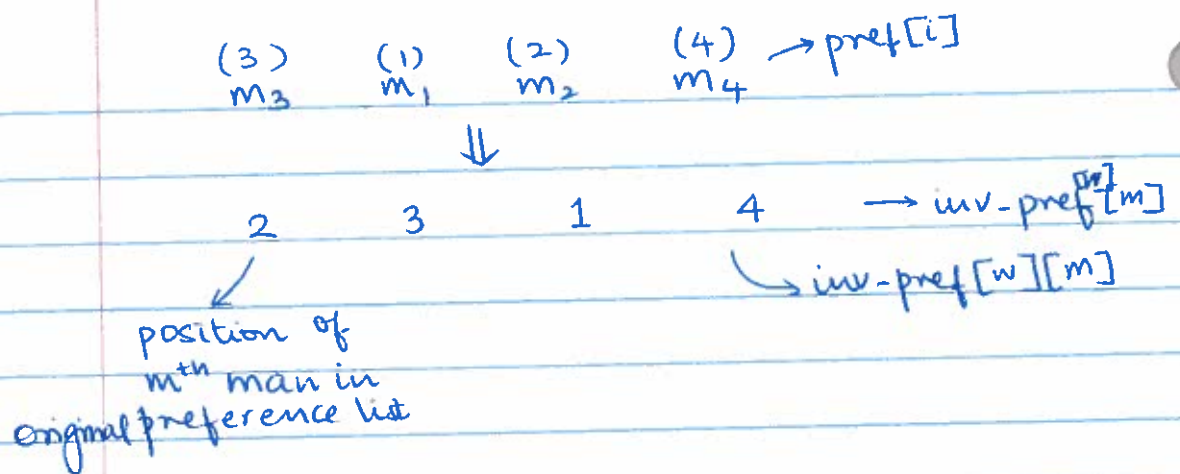 (3) (1) (2) (4) → pref[i]
m₃ m₁ m₂ m₄
⇓
2 3 1 4 → inv-pref[w][m]
↳ inv-pref[w][m]
position of
mth man in
original preference list